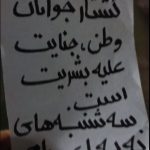 کشتار جوانان
وطن، جنایت
علیه بشریت
است.
سه‌شنبه‌های
نه به اعدام